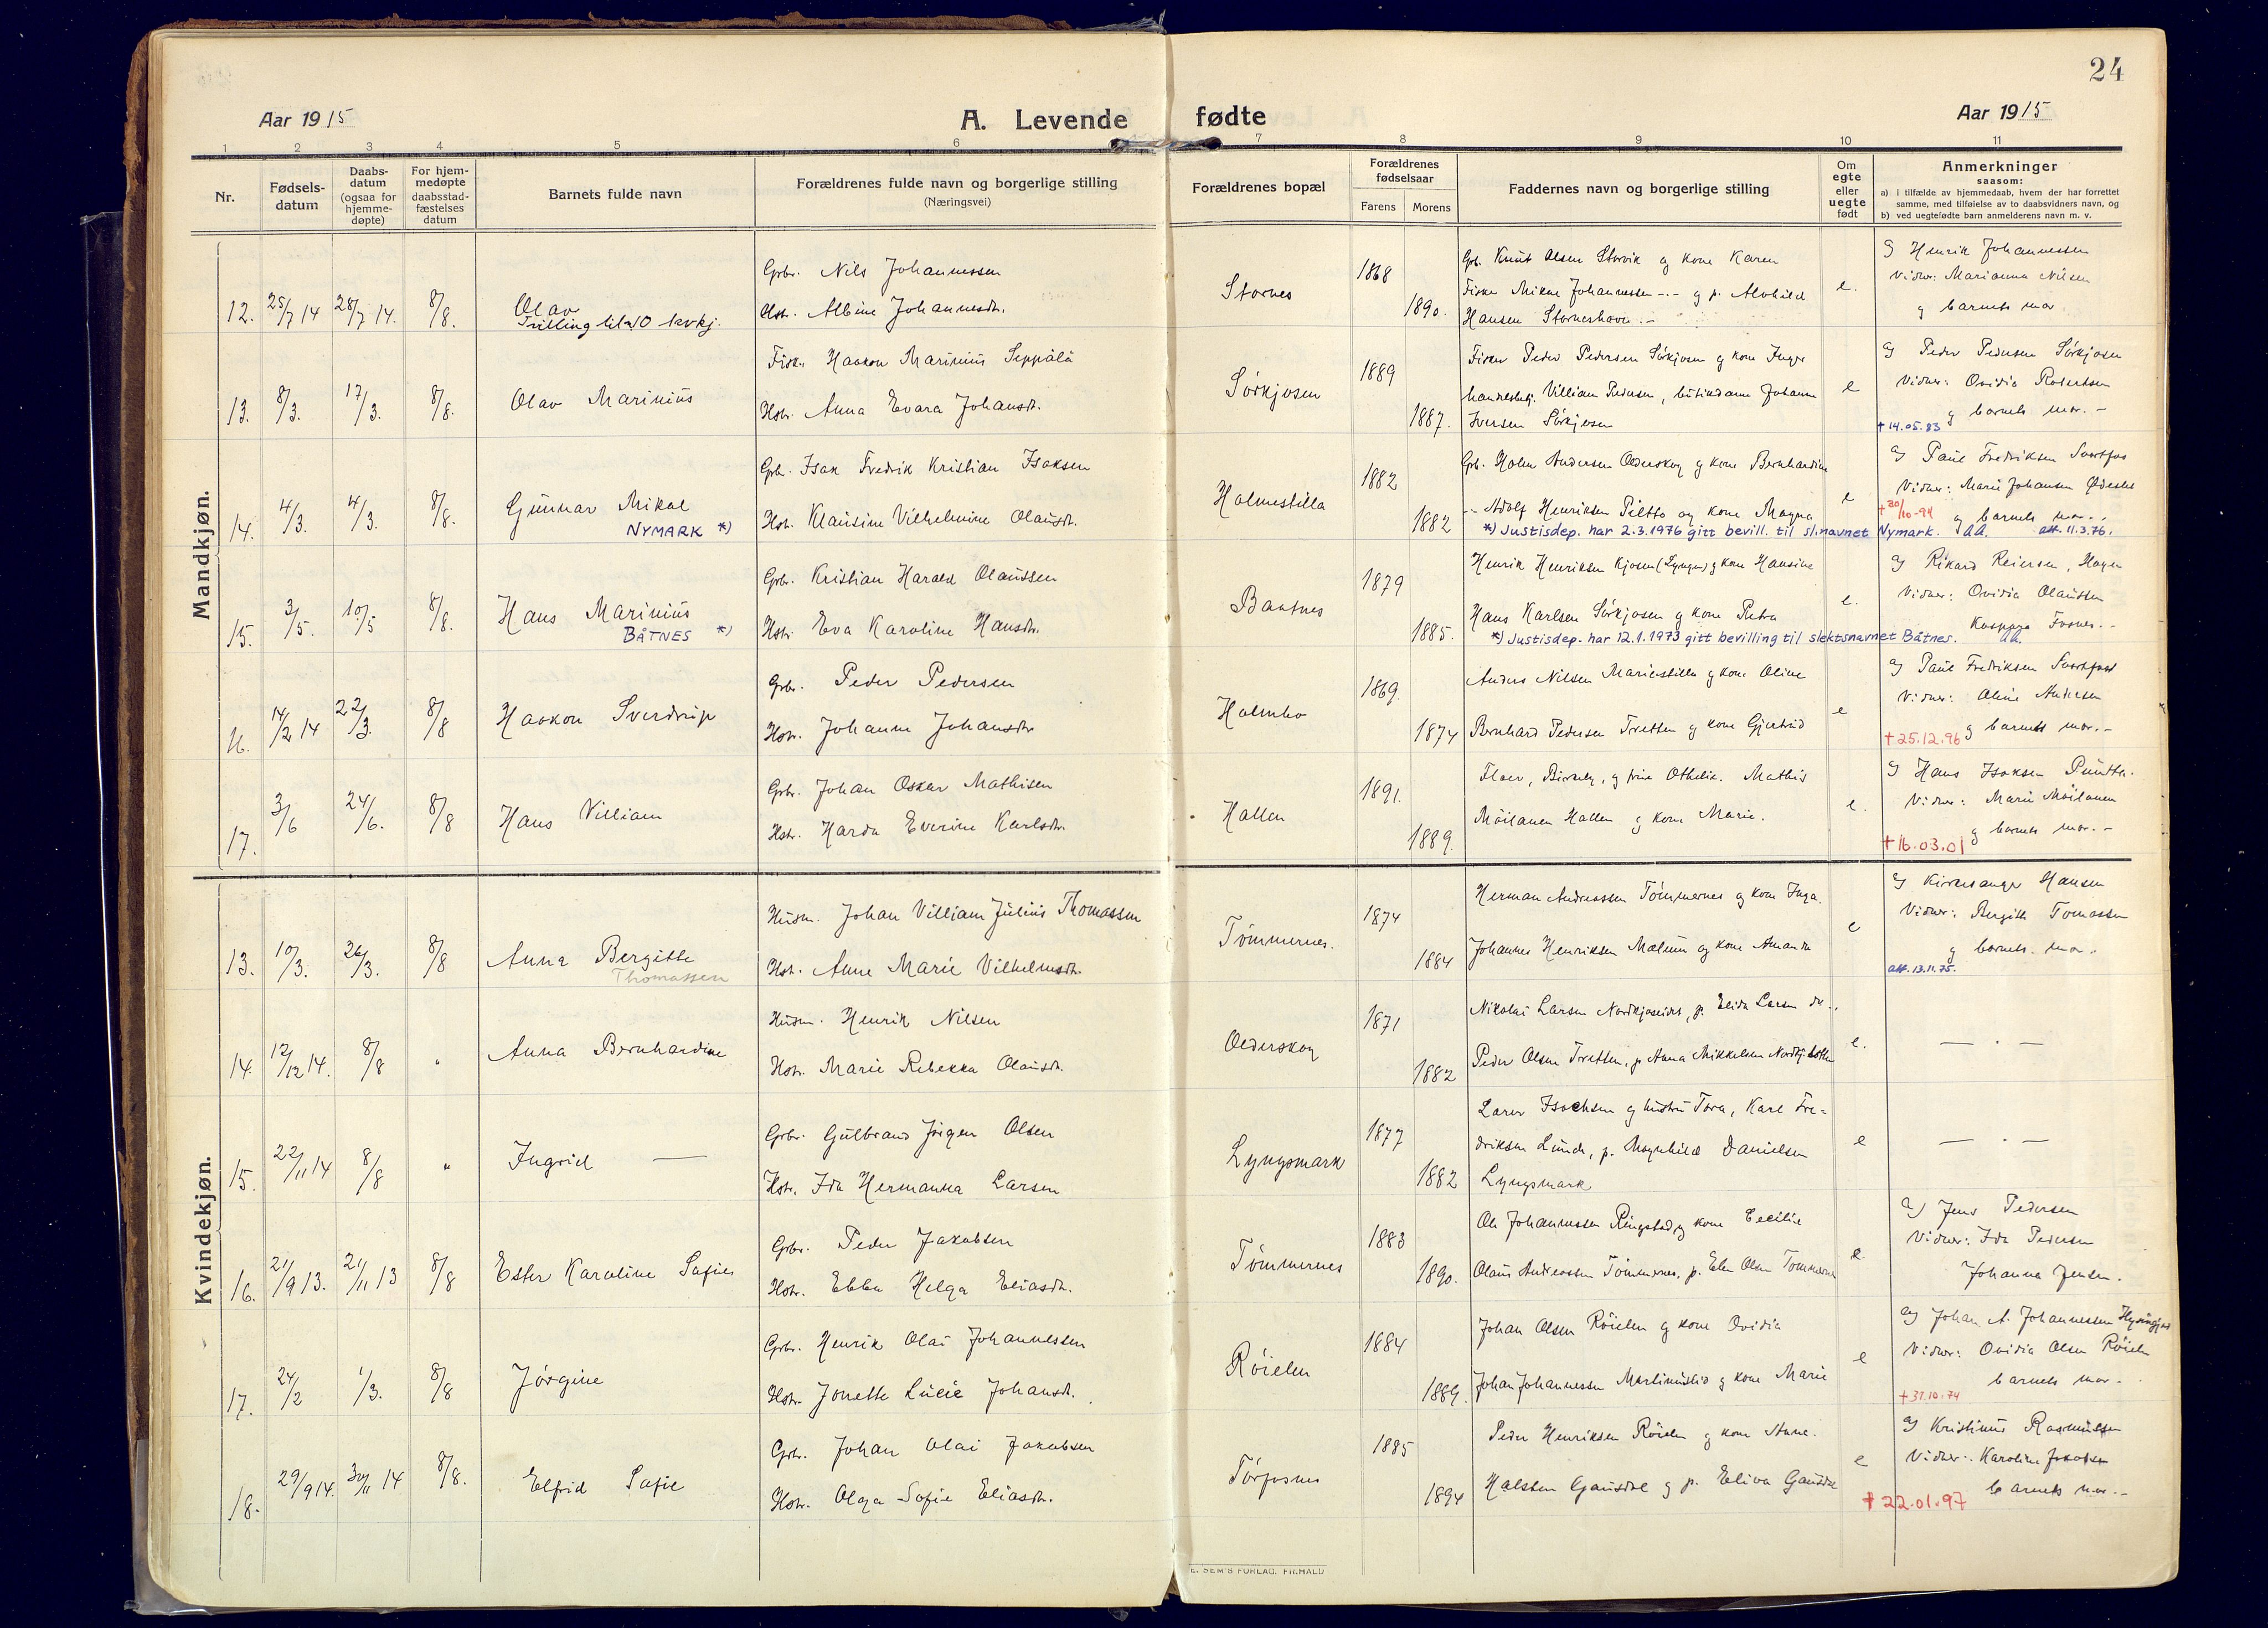 24
Aar 1915
A. Levende fødte
Aar 1915
1 2 3 4 5 6 7 8 9 10 11
Nr.
Fødsels-
datum
Daabs-
datum
(ogsaa for
hjemme-
døpte)
For hjem-
medøpte
daabsstad-
fæstelses
datum
Barnets fulde navn
Forældrenes fulde navn og borgerlige stilling
(Næringsvei)
Forældrenes bopæl
Forældrenes
fødselsaar
Farens Morens
Faddernes navn og borgerlige stilling
Om
egte
eller
uegte
født
Anmerkninger
saasom:
a) i tilfælde av hjemmedaab, hvem der har forrettet
samme, med tilføielse av to daabsvidners navn, og
b) ved uegtefødte barn anmelderens navn m. v.
Mandkjøn.
12. 25/7 14 28/7 14. 8/8.
Olav
Tvilling til 10 kvkj.
Grbr. Nils Johannessen
Hstr. Albine Johannesdtr.
Stornes
1868
1890.
Grb. Knut Olsen Storvik og kone Karen
Fisker Mikal Johannessen -"- og p. Alvhild
Hansen Storneshave. -
e.
a) Henrik Johannessen
Vidner: Marianna Nilsen
og barnets mor
13. 8/3. 17/3. 8/8.
Olav Marinius
Fisk. Haakon Marinius Seppälä
Hstr. Anna Evara Johansdtr.
Sørkjosen
1889
1887.
Fisker Peder Pedersen Sørkjosen og kone Inger
Handelsbetj. Villiam Pedersen, butikdame Johanne
Iversen Sørkjosen
e
a) Peder Pedersen Sørkjosen
Vidner: Ovidia Robertsen
og barnets mor. -
+14.05.83
14. 4/3. 4/3. 8/8.
Gunnar Mikal
NYMARK *)
Grb. Isak Fredrik Kristian Isaksen
Hst. Klausine Vilhelmine Olausdtr.
Holmestilla
1882
1882
Grb. Holm Andersen Olderskog og kone Bernhardine
-"- Adolf Henriksen Pieltto og kone Magna
*) Justisdep. har 2.3.1976 gitt bevill. til sl.navnet Nymark.
att. 11.3.76.
e
a) Paul Fredriksen Svartfos
Vidner: Marie Johansen
og barnets mor.
+30/10-94
15. 3/5. 10/5 8/8.
Hans Marinius
BÅTNES *)
Grb. Kristian Harald Olaussen
Hstr. Eva Karoline Hansdtr.
Baatnes
1879
1885.
Henrik Henriksen Kjosen (Lyngen) og kone Hansine
Hans Karlsen Sørkjosen og kone Petra
*) Justisdep. har 12.1.1973 gitt bevilling til slektsnavnet Båtnes.
e.
a) Rikard Reiersen, Hagen
Vidner: Ovidia Olaussen
Kaspara Fosnes. -
16. 14/2 14 22/3. 8/8
Haakon Sverdrup
Grbr. Peder Pedersen
Hstr. Johanna Johansdtr
Holmbo
1869.
1874
Anders Nilsen Mariasstilla og kone Oline
Bernhard Pedersen Tretten og kone Gjertrud
e
a) Paul Fredriksen Svartfoss
Vidner: Oline Andersen
og barnets mor. -
+25.12.96
17. 3/6 24/6. 8/8
Hans Villiam
Grbr. Johan Oskar Mathisen
Hstr. Harda Everine Karlsdtr.
Hallen
1891.
1889.
Floer, Birkely, og frue Othelie. Mathis
Mäilanen Hallen og kone Marie.
e.
a) Hans Isaksen Puntta.
Vidner: Marie Mäilanen
og barnets mor. -
+16.03.01
Kvindekjøn.
13. 10/3. 26/3. 8/8
Anna Bergitte
Thomassen
Husm. Johan Villiam Julius Thomassen
Hst. Anne Marie Vilhelmsdtr.
Tømmernes.
1874
1884
Herman Andreassen Tømmernes og kone Inga.
Johannes Henriksen Mælum og kone Amanda
e
a) Kirkesanger Hansen
Vidner: Bergitte Tomassen
og barnets mor.
att. 13.11.75.
14. 12/12 14. 8/8 "
Anna Bernhardine
Husm. Henrik Nilsen
Hstr. Marie Rebekka Olausdtr.
Olderskog
1871
1882
Nikolai Larsen Nordkjoseidet, p. Elida Larsen do.,
Peder Olsen Tretten, p. Anna Mikkelsen Nordkj.botten
e.
— . —
15. 22/11 14 8/8 "
Ingrid —
Grbr. Gulbrand Jørgen Olsen
Hstr. Ida Hermanna Larsen
Lyngsmark
1877
1882
Laver Isachsen og hustru Tora, Karl Fre=
driksen Lunde, p. Magnhild Danielsen
Lyngsmark
e
— . —
16. 21/9 13. 21/11 13 8/8
Ester Karoline Sofie
Grbr. Peder Jakobsen
Hstr. Ebba Helga Eliasdtr.
Tømmernes
1883
1890.
Ole Johannessen Ringstad og kone Cecilie
Olaus Andreassen Tømmernes, p. Elen Olsen Tømmernes
e
a) Jens Pedersen
Vidner: Ida Pedersen
Johanna Jensen.
17. 24/2 1/3. 8/8
Jørgine
Grbr. Henrik Olai Johannessen
Hstr. Jonette Lucie Johansdtr.
Røielen
1884
1889.
Johan Olsen Røielen og kone Ovidia
Johan Johannessen Martinuslid og kone Marie
e
a) Johan A. Johannessen
Vidner: Ovidia Olsen Røielen
barnets mor.
+31.10.74
18. 29/9 14. 30/11 14 8/8.
Elfrid Sofie
Grb. Johan Olai Jakobsen
Hstr. Olga Sofie Eliasdtr.
Tørfosnes
1885
1894
Peder Henriksen Røielen og kone Anne.
Halsten Gausdal og p. Eliva Gausdal
e
a) Kristinus Rasmussen
Vidner: Karoline Jakobsen
barnets mor. -
+22.01.97
E. SEM'S FORLAG. FR.HALD